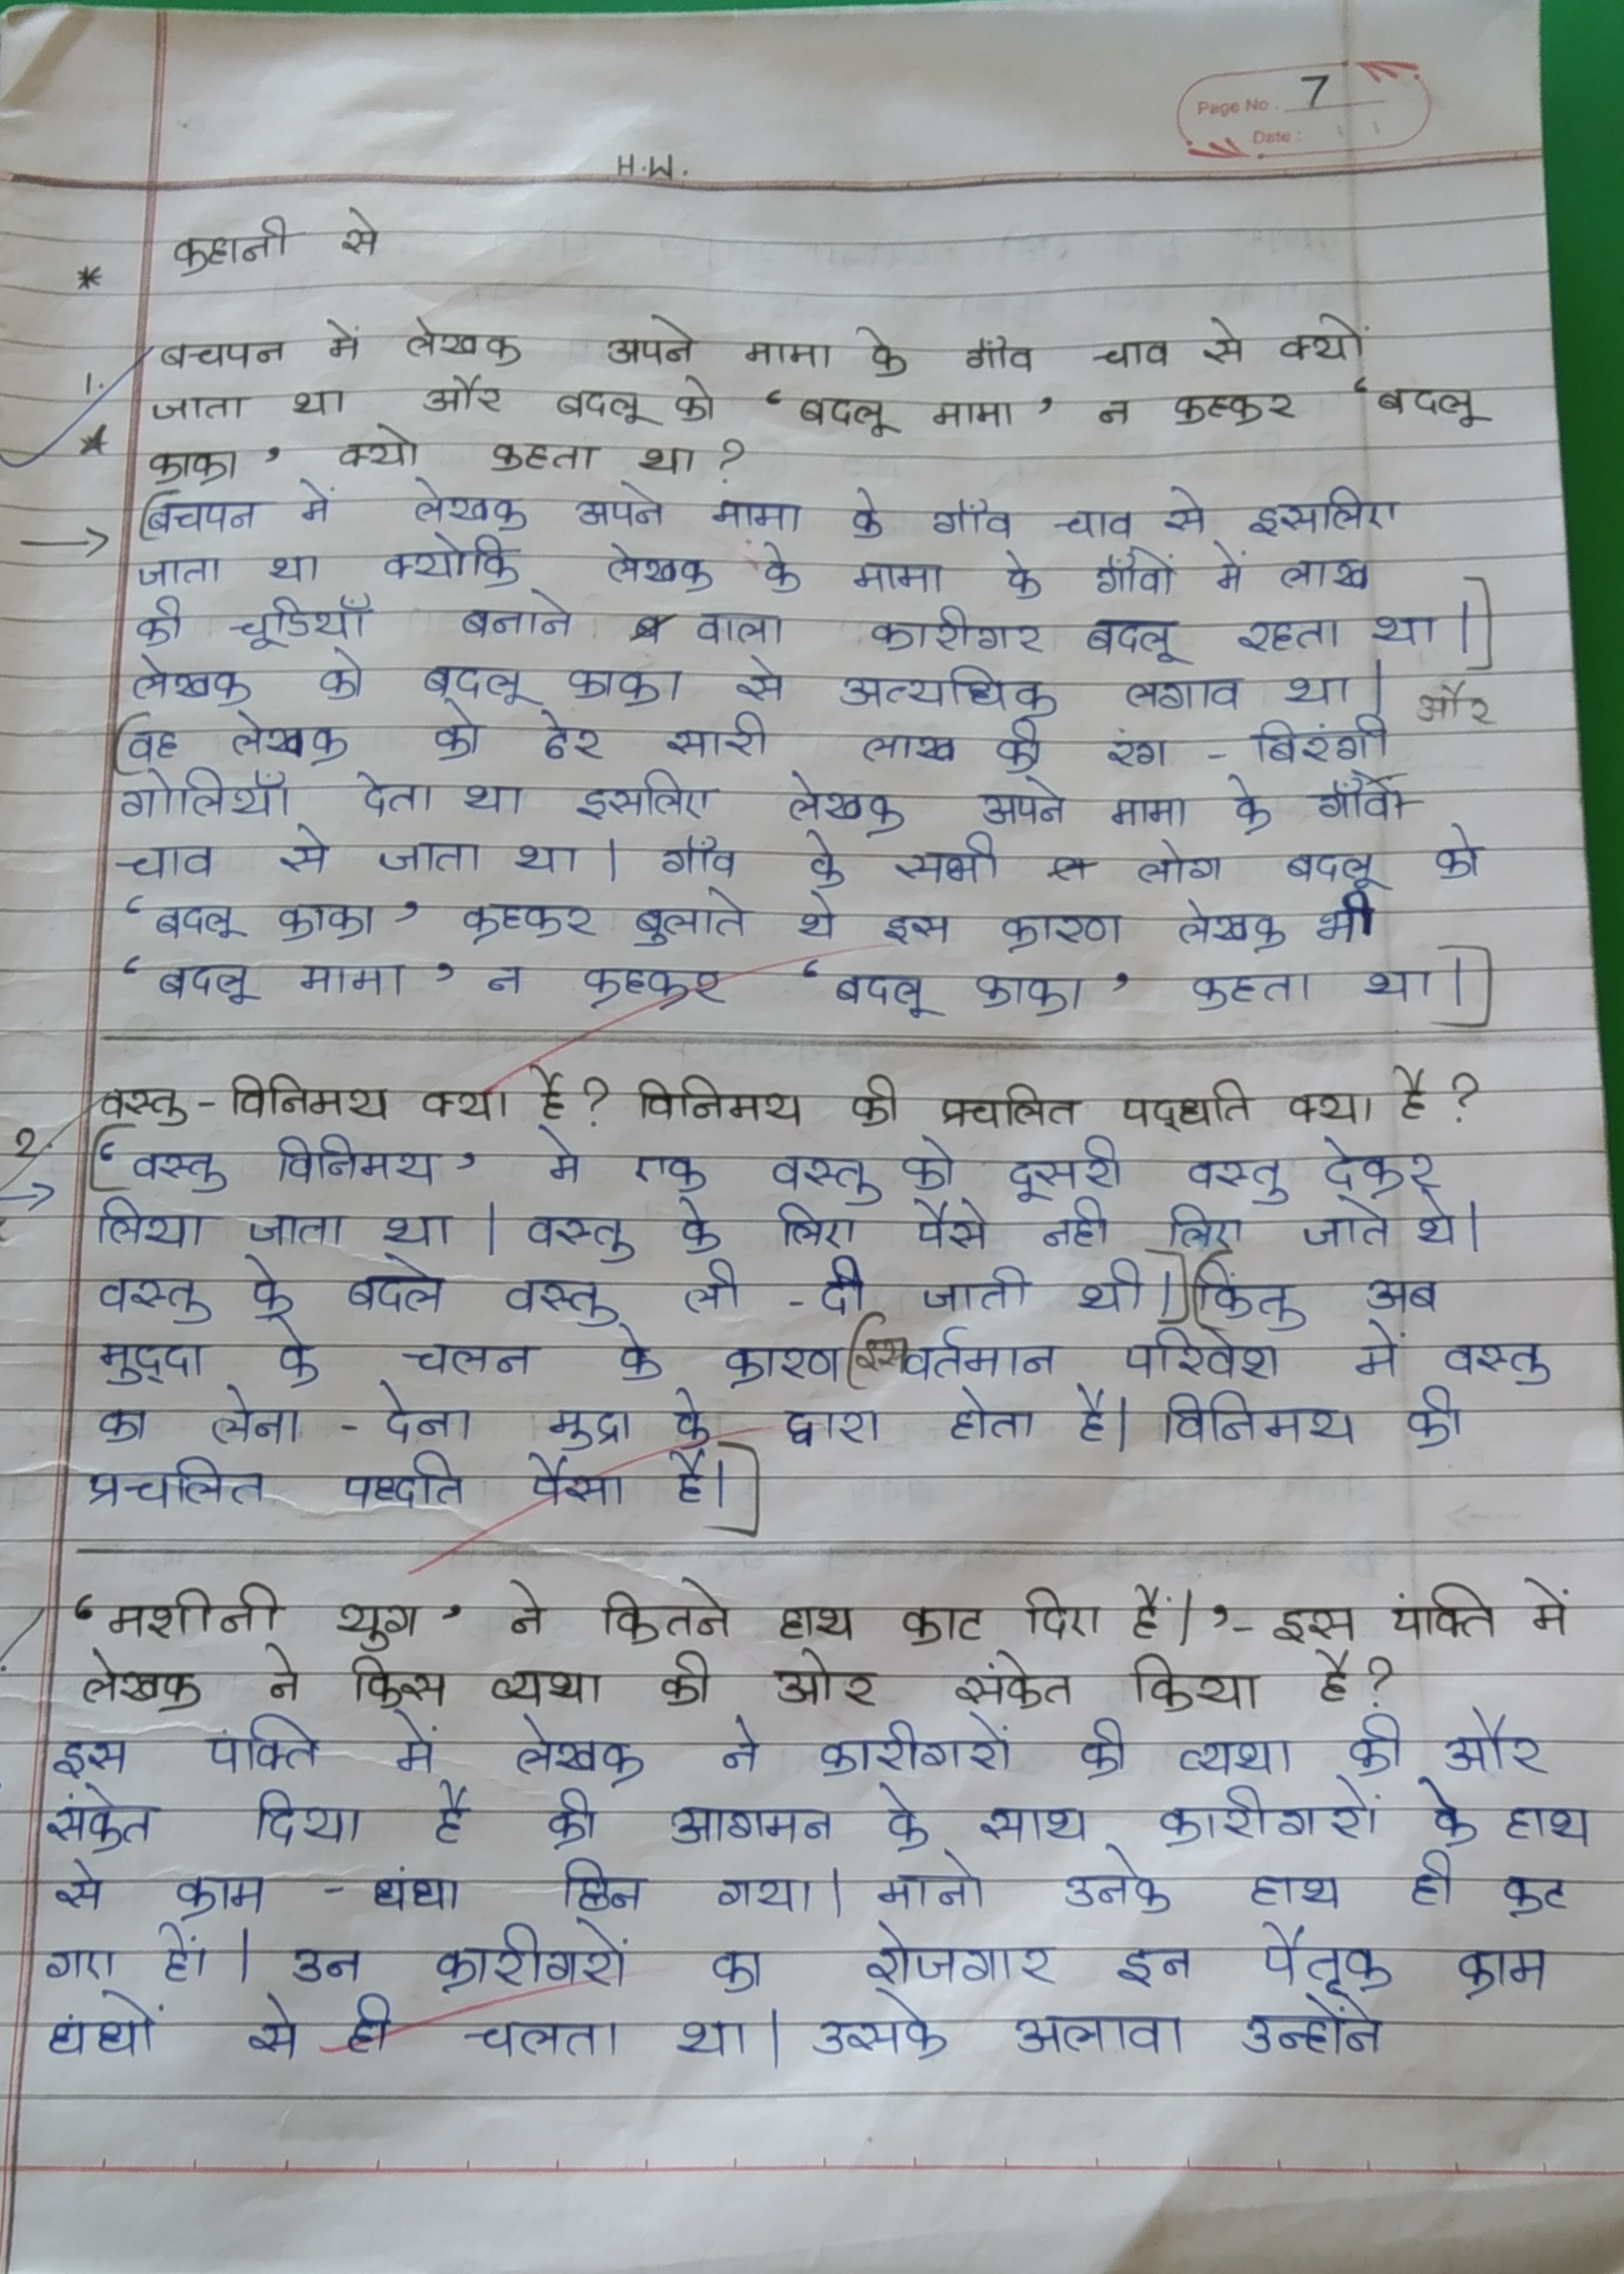 Page No. 7
Date :
H.W.
* कहानी से
1. बचपन में लेखक अपने मामा के गाँव चाव से क्यों
जाता था और बदलू को ‘बदलू मामा’ न कहकर ‘बदलू
* काका’ क्यो कहता था?
→ (बचपन में लेखक अपने मामा के गाँव चाव से इसलिए
जाता था क्योकि लेखक के मामा के गाँवों में लाख
की चूडियाँ बनाने वाला कारीगर बदलू रहता था।]
लेखक को बदलू काका से अत्यधिक लगाव था। और
(वह लेखक को ढेर सारी लाख की रंग - बिरंगी
गोलियाँ देता था इसलिए लेखक अपने मामा के गाँवों
चाव से जाता था। गाँव के सभी लोग बदलू को
‘बदलू काका’ कहकर बुलाते थे इस कारण लेखक भी
‘बदलू मामा’ न कहकर ‘बदलू काका’ कहता था।]
2. वस्तु - विनिमय क्या है? विनिमय की प्रचलित पद्धति क्या है?
→ (‘वस्तु विनिमय’ मे एक वस्तु को दूसरी वस्तु देकर
लिया जाता था। वस्तु के लिए पैसे नही लिए जाते थे।
वस्तु के बदले वस्तु ली - दी जाती थी।](किंतु अब
मुद्दा के चलन के कारण (वर्तमान परिवेश में वस्तु
का लेना - देना मुद्रा के द्वारा होता है। विनिमय की
प्रचलित पध्दति पैसा है।]
‘मशीनी युग’ ने कितने हाथ काट दिए हैं।’- इस पंक्ति में
लेखक ने किस व्यथा की ओर संकेत किया है?
इस पंक्ति में लेखक ने कारीगरों की व्यथा की और
संकेत दिया है की आगमन के साथ कारीगरों के हाथ
से काम - धंधा छिन गया। मानो उनके हाथ ही कट
गए हों। उन कारीगरों का रोजगार इन पैतृक काम
धंधों से ही चलता था। उसके अलावा उन्होंने